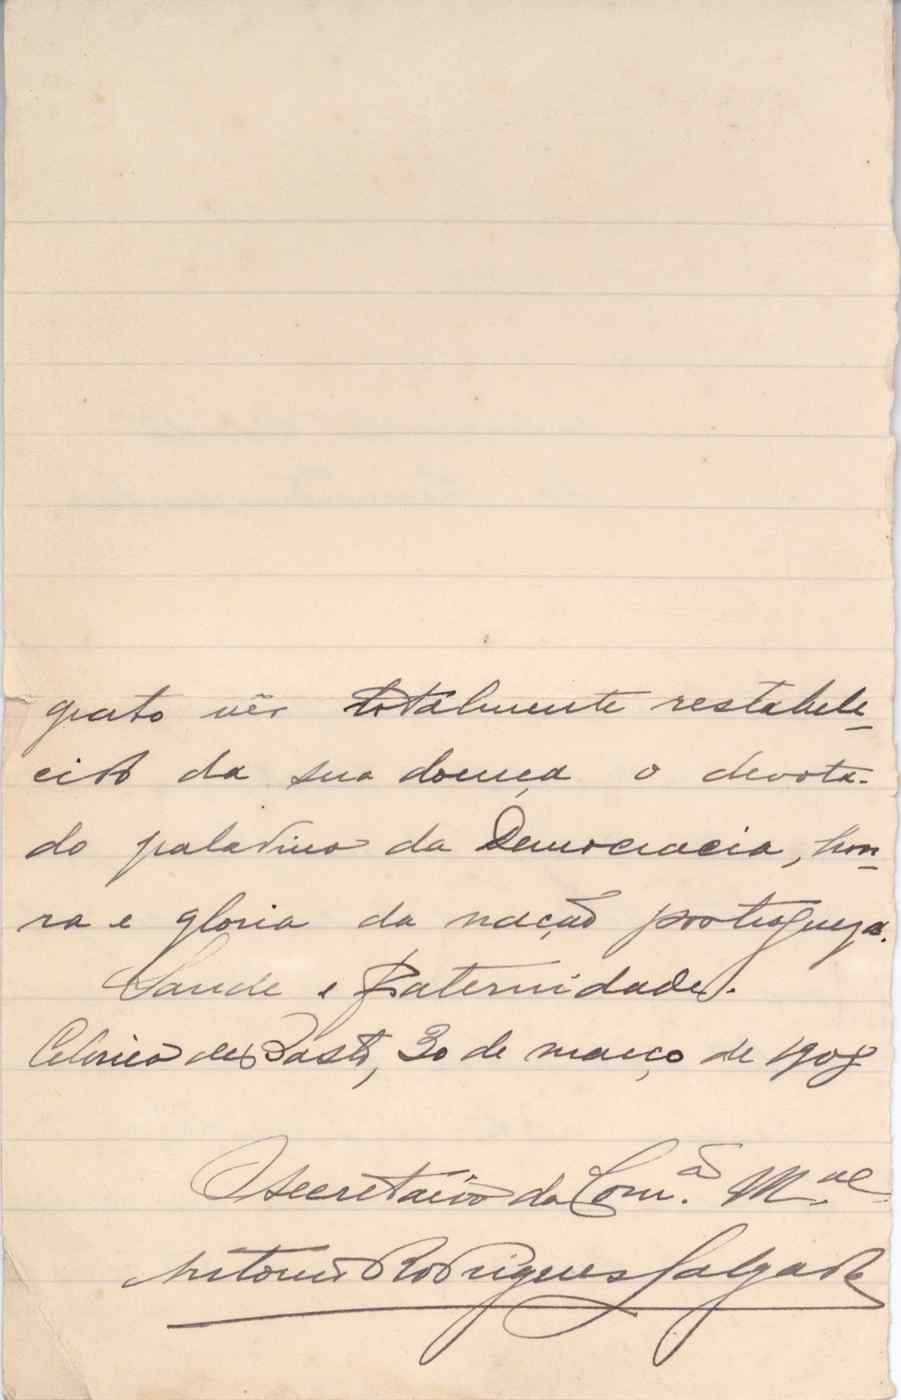 grato vêr totalmente restabele-
cido da sua doença o devota-
do paladino da Democracia, hon-
ra e gloria da nação portugueza.
Saude e Fraternidade.
Celorico de Basto, 30 de março de 1908
O secretario da Com.ão M.al
Antonio Rodrigues Salgado